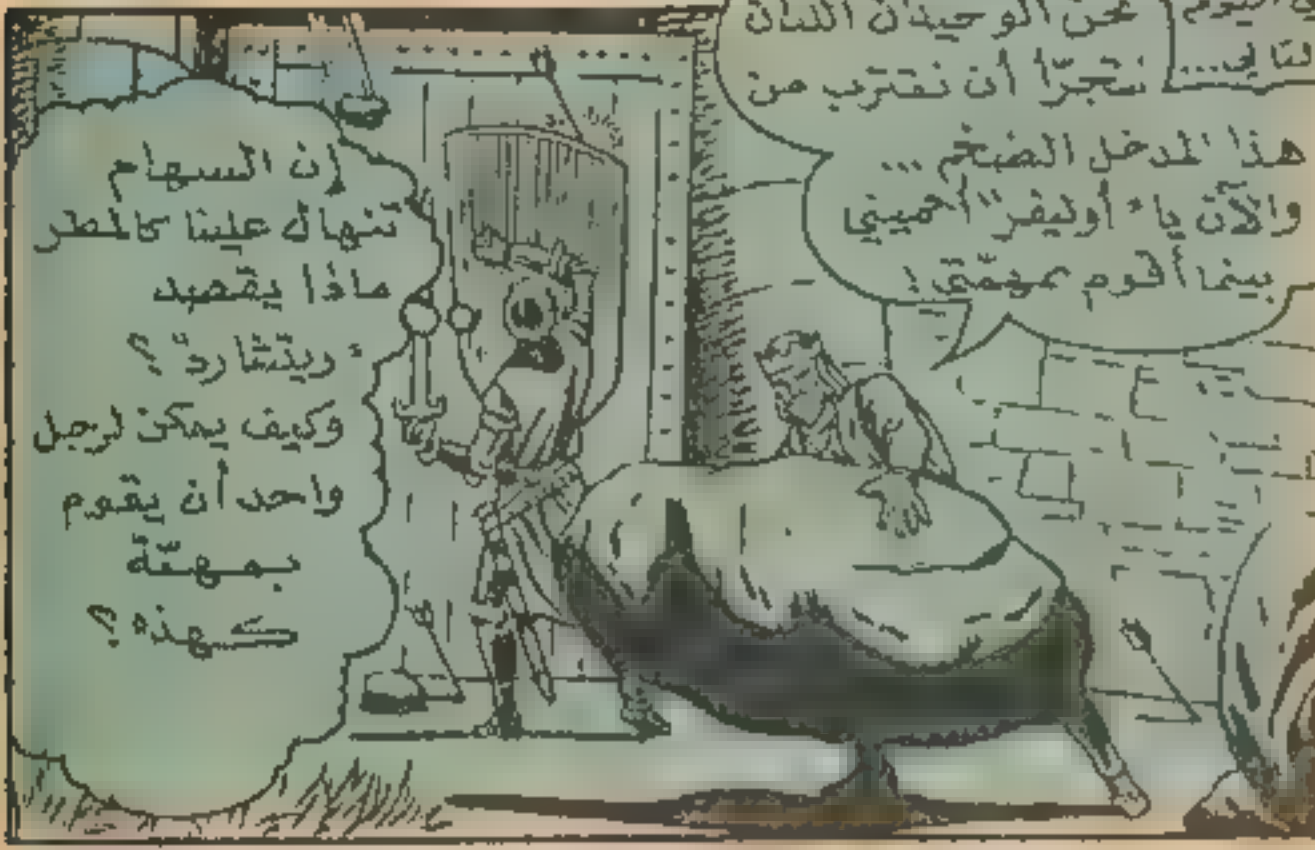 اليوم
نحن الوحيدان اللذان
نتجرّأ أن نقترب من
هذا المدخل الضخم ...
والآن يا "أوليفر" أحميني
بينما أقوم بمهمّتي!
إن السهام
تنهال علينا كالمطر
ماذا يقصد
"ريتشارد"؟
وكيف يمكن لرجل
واحد أن يقوم
بمهمّة
كهذه؟